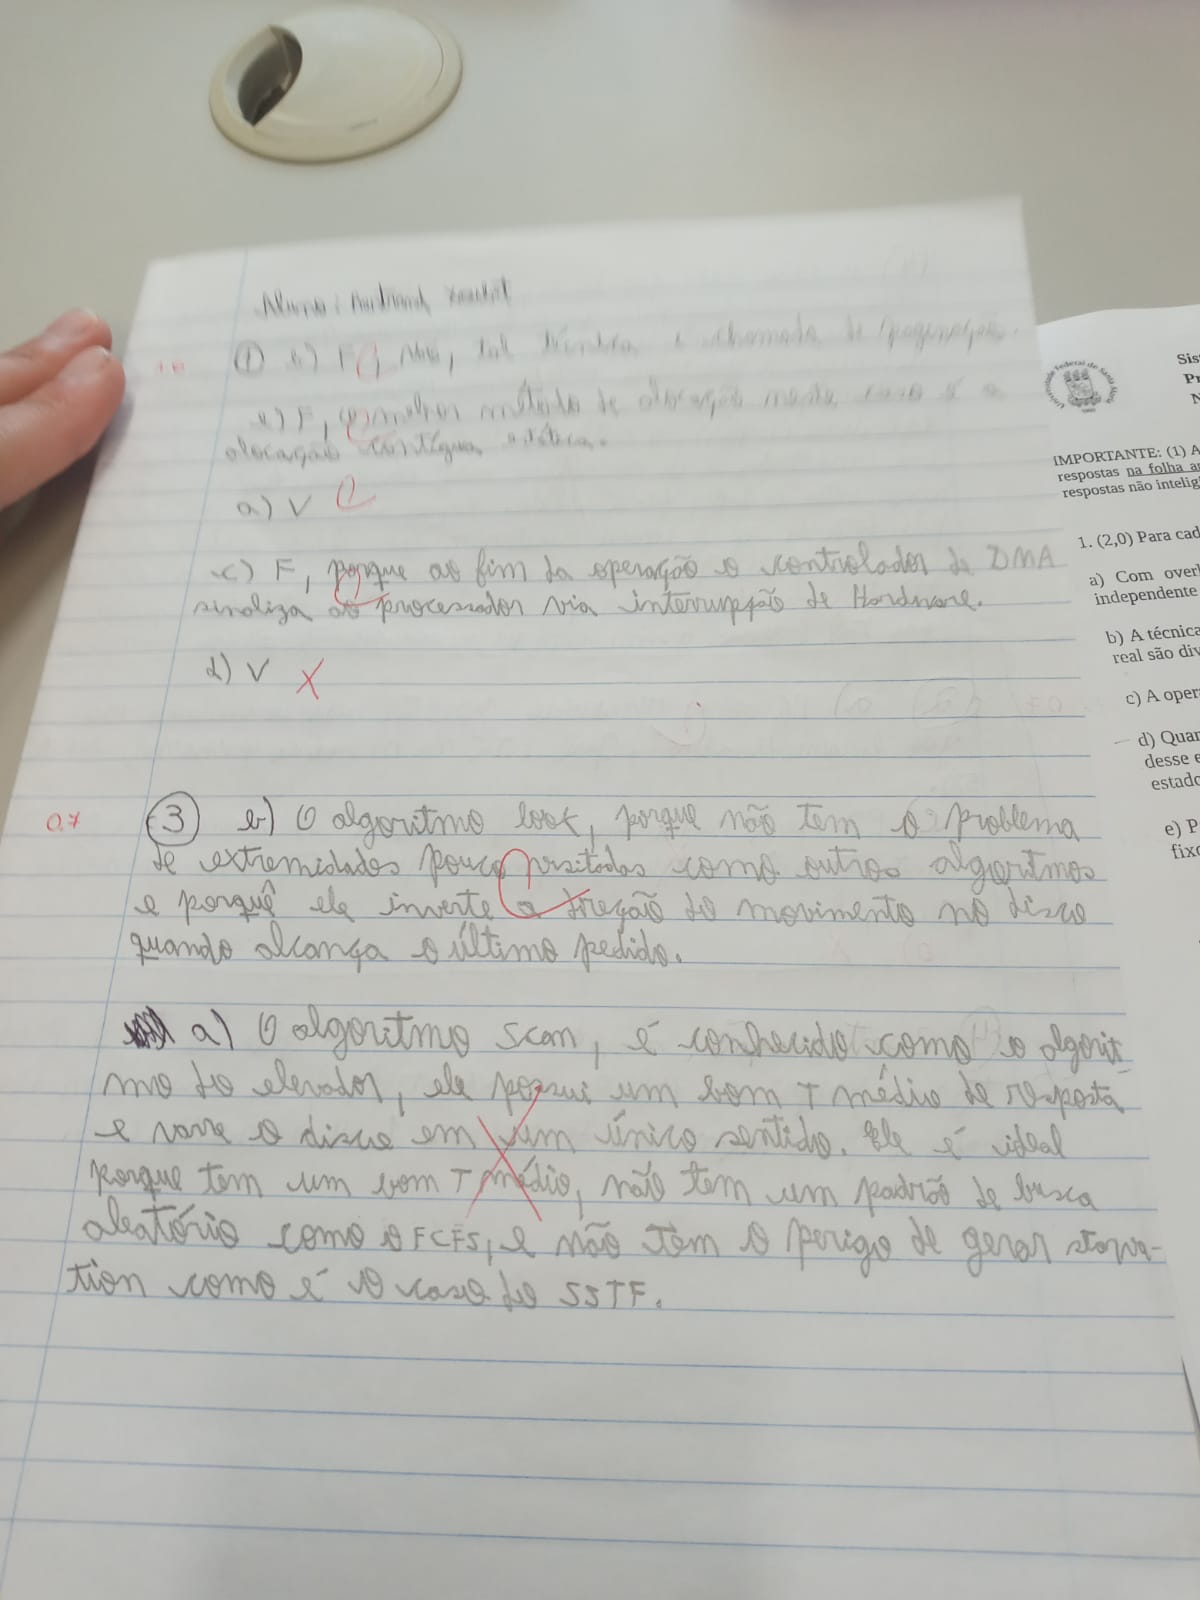 Aluno:
1.8
① b) F, Não, tal técnica é chamada de paginação.
e) F, o melhor método de alocação neste caso é a
alocação contígua
a) V
c) F, porque ao fim da operação o controlador de DMA
sinaliza ao processador via interrupção de Hardware.
d) V
0.7
③ b) O algoritmo look, porque não tem o problema
de extremidades pouco visitadas como outros algoritmos
e porquê ele inverte a direção do movimento no disco
quando alcança o último pedido.
a) O algoritmo scan, é conhecido como o algorit
mo do elevador, ele possui um bom T médio de resposta
e varre o disco em um único sentido. Ele é ideal
porque tem um bom T médio, não tem um padrão de busca
aleatório como o FCFS, e não tem o perigo de gerar starva-
tion como é o caso do SSTF.
Universidade Federal de Santa Maria
Sis
Pr
N
IMPORTANTE: (1) A
respostas na folha a
respostas não intelig
1. (2,0) Para cad
a) Com over
independente
b) A técnica
real são div
c) A oper
d) Quan
desse e
estado
e) P
fixo